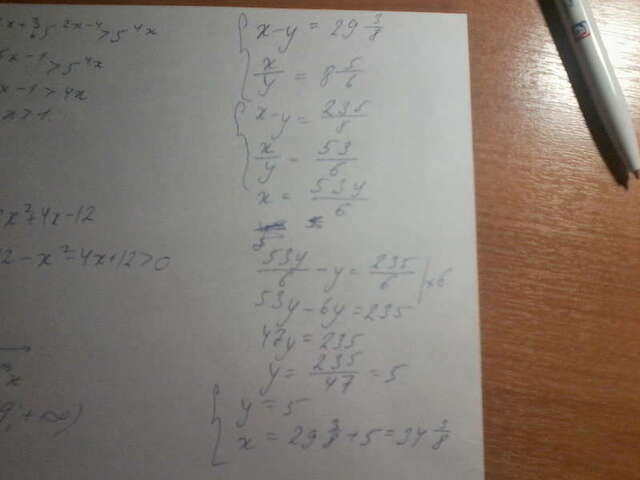 x+3 · 5^2x-4 > 5^4x
x-1 > 5^4x
x-1 > 4x
x > 1
x²+4x-12
2-x²-4x+12>0
x
; +∞)
{ x-y = 29 3/8
x/y = 8 5/6
{ x-y = 235/8
x/y = 53/6
x = 53y/6
53y/6 - y = 235/6 | ×6
53y-6y=235
47y=235
y = 235/47 = 5
{ y = 5
x = 29 3/8 + 5 = 34 3/8